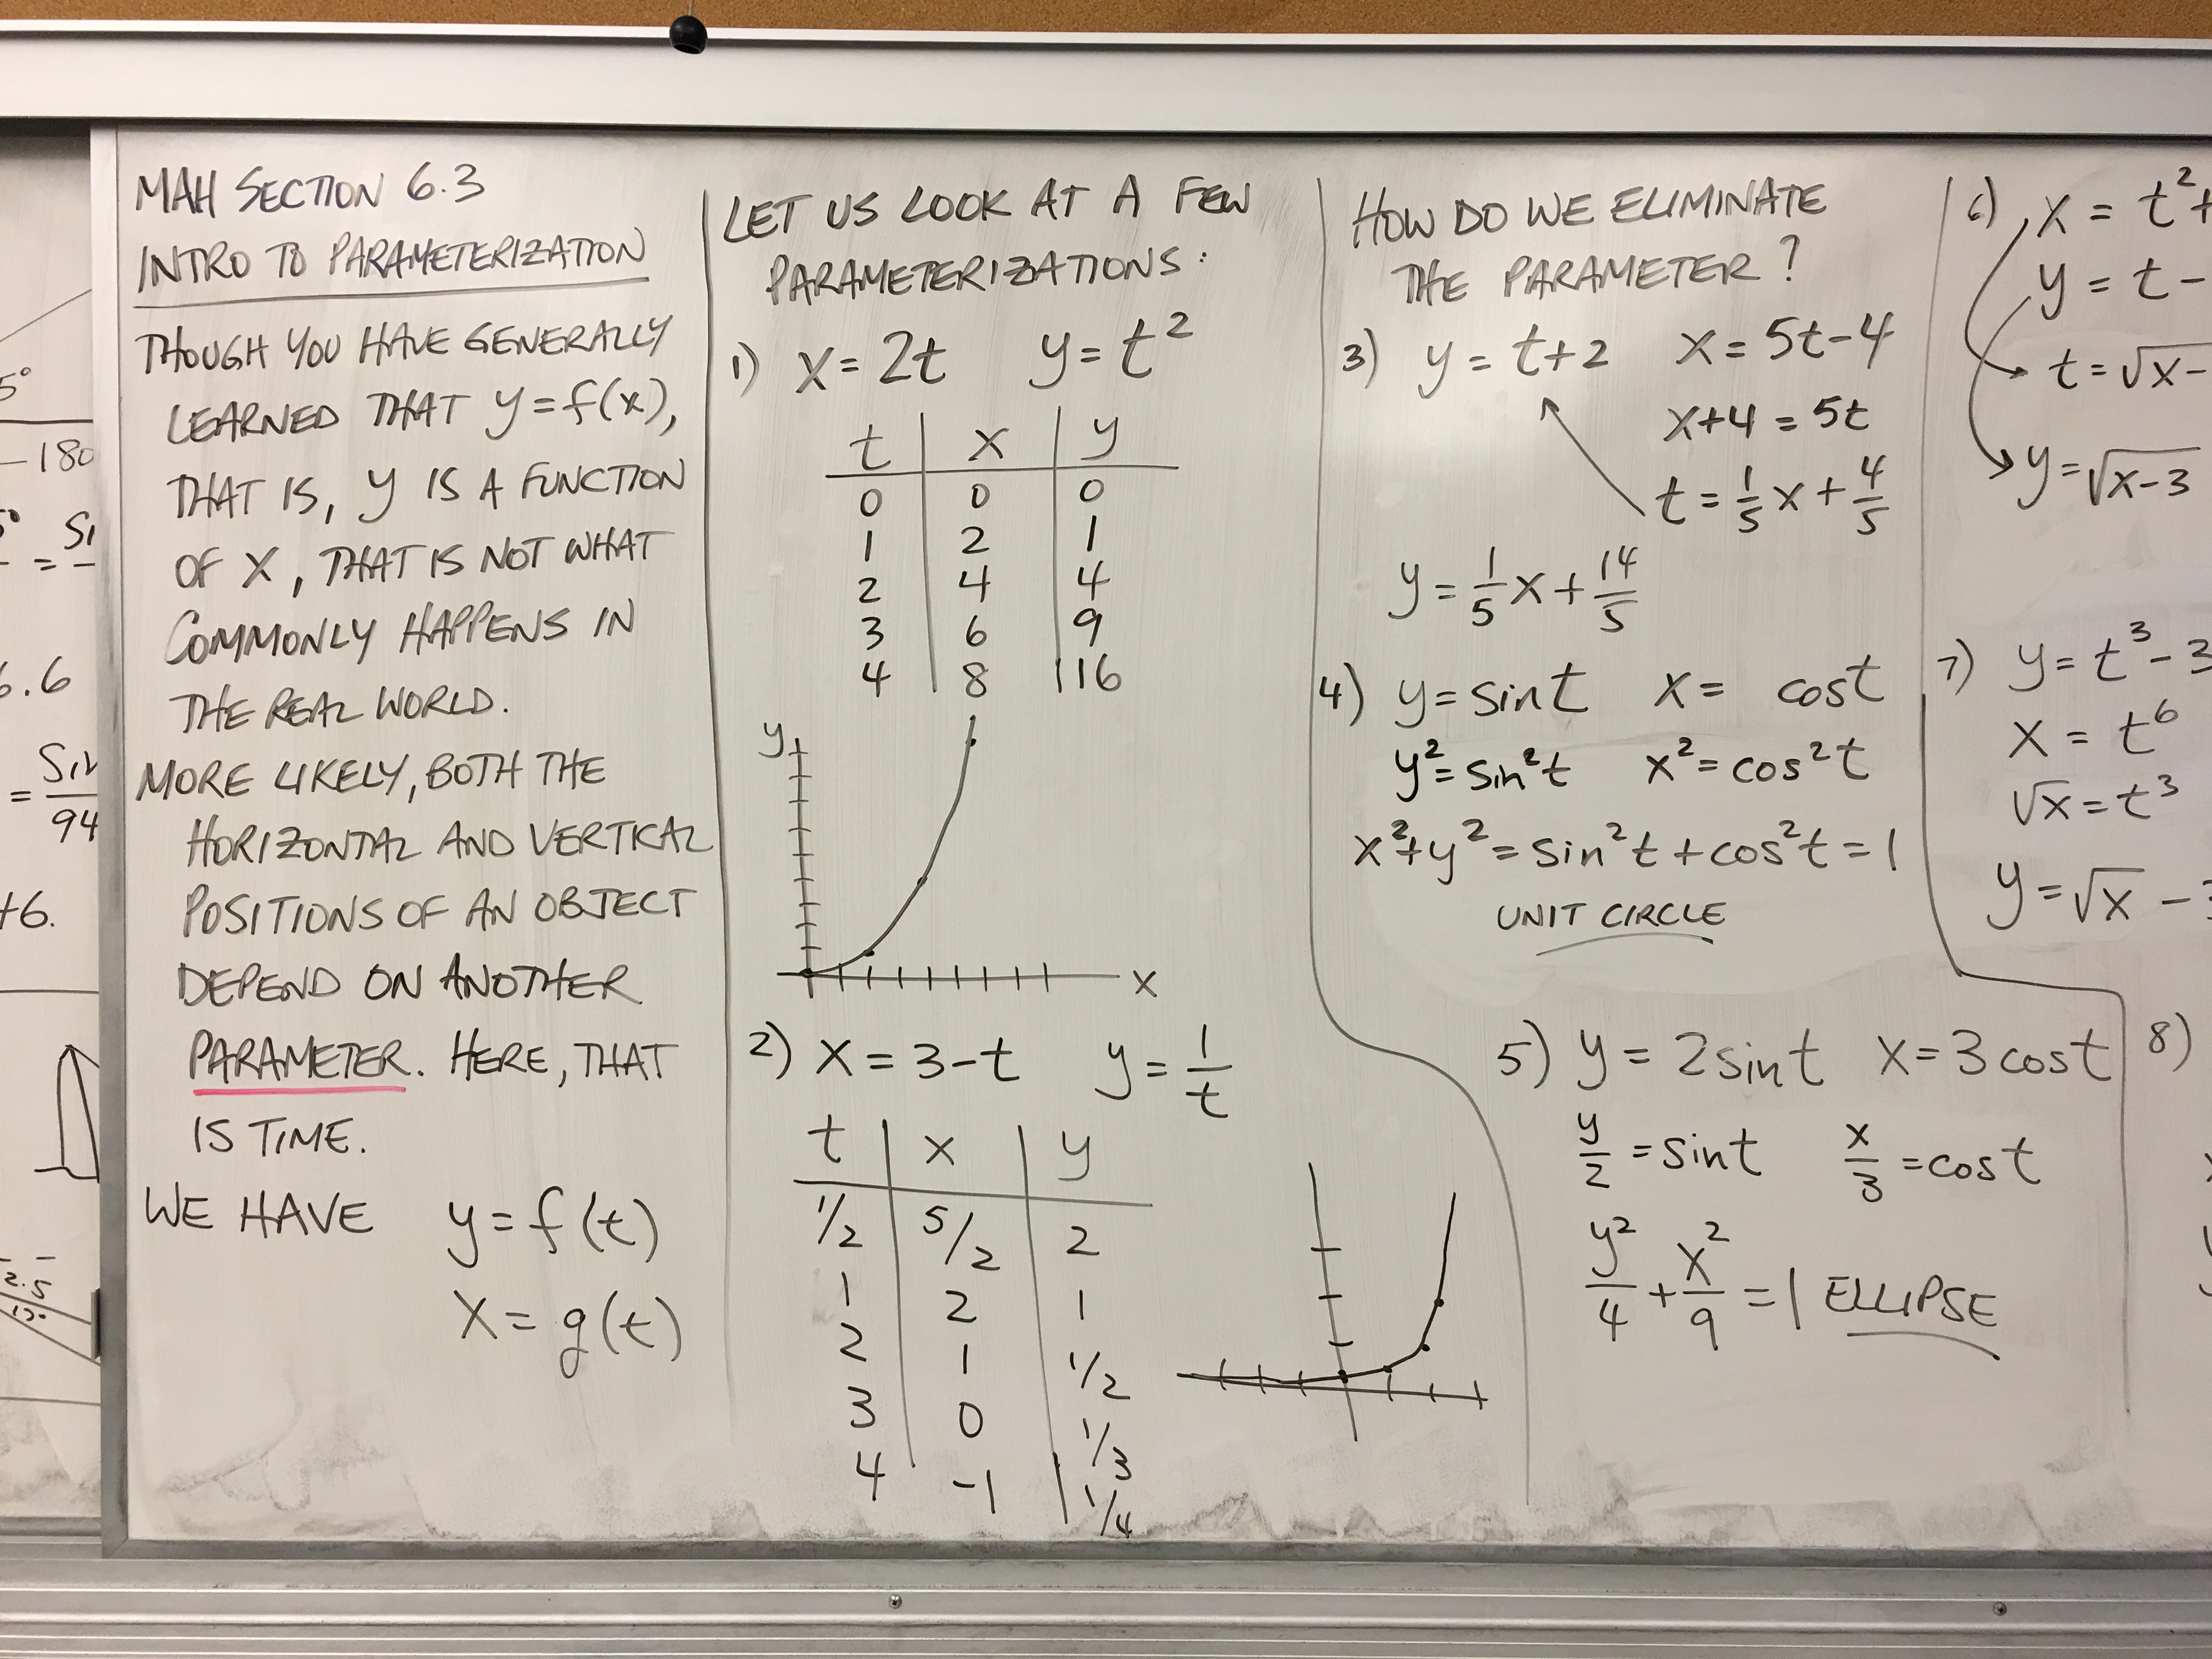 MAH SECTION 6.3
INTRO TO PARAMETERIZATION
THOUGH YOU HAVE GENERALLY
LEARNED THAT y=f(x),
THAT IS, y IS A FUNCTION
OF X, THAT IS NOT WHAT
COMMONLY HAPPENS IN
THE REAL WORLD.
MORE LIKELY, BOTH THE
HORIZONTAL AND VERTICAL
POSITIONS OF AN OBJECT
DEPEND ON ANOTHER
PARAMETER. HERE, THAT
IS TIME.
WE HAVE y=f(t)
x=g(t)
LET US LOOK AT A FEW
PARAMETERIZATIONS:
1) x=2t y=t²
t x y
0 0 0
1 2 1
2 4 4
3 6 9
4 8 16
y
x
2) x=3-t y=1/t
t x y
1/2 5/2 2
1 2 1
2 1 1/2
3 0 1/3
4 -1 1/4
HOW DO WE ELIMINATE
THE PARAMETER?
3) y=t+2 x=5t-4
x+4=5t
t=1/5x+4/5
y=1/5x+14/5
4) y=sint x= cost
y²=sin²t x²=cos²t
x²+y²=sin²t+cos²t=1
UNIT CIRCLE
5) y=2sint x=3cost
y/2=sint x/3=cost
y²/4+x²/9=1 ELLIPSE
6) x=t²+
y=t-
t=√x-
y=√x-3
7) y=t³-3
x=t⁶
√x=t³
y=√x-
8)
5°
-180
6.6
94
+6.
2.5